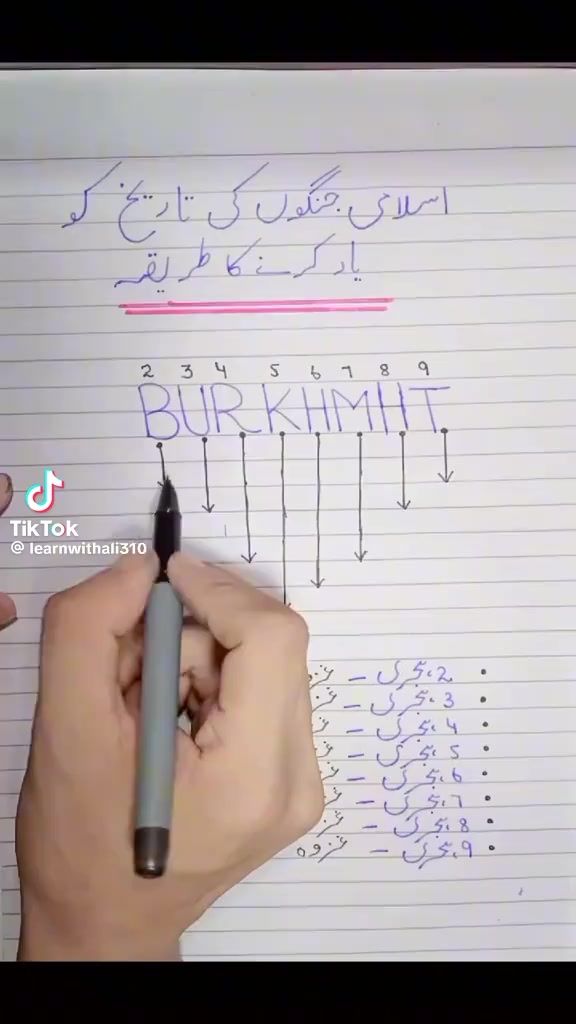 اسلامی جنگوں کی تاریخ کو
یاد کرنے کا طریقہ
2 3 4 5 6 7 8 9
BURKHMHT
TikTok
@ learnwithali310
2 ہجری –
3 ہجری –
4 ہجری –
5 ہجری –
6 ہجری –
7 ہجری –
8 ہجری –
9 ہجری – غزوہ